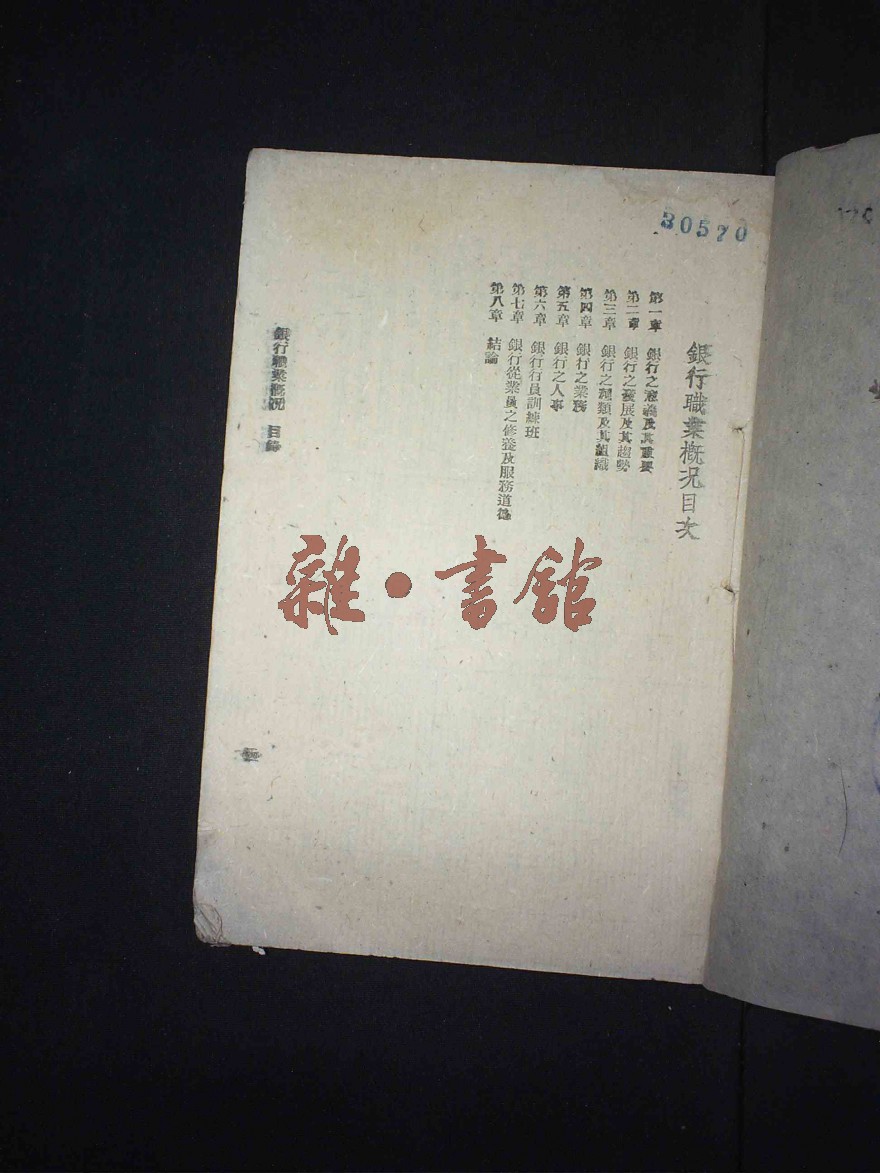 30570
銀行職業概況目次
第一章 銀行之意義及其重要
第二章 銀行之發展及其趨勢
第三章 銀行之種類及其組織
第四章 銀行之業務
第五章 銀行之人事
第六章 銀行行員訓練班
第七章 銀行從業員之修養及服務道德
第八章 結論
銀行職業概況 目錄
雜·書館